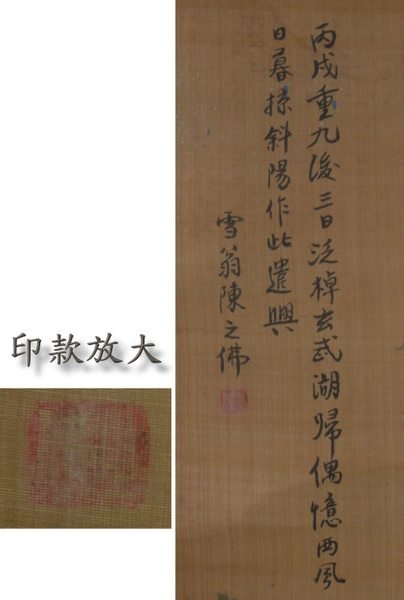 丙戌重九後三日泛棹玄武湖歸偶憶西風
日暮掠斜陽作此遣興
雪翁陳之佛
印款放大